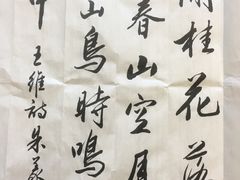 桂花落
春山空月
山鳥時鳴
中 王維詩 朱